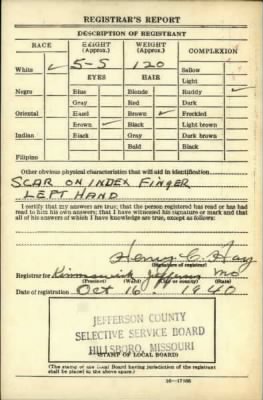 REGISTRAR'S REPORT
DESCRIPTION OF REGISTRANT
RACE HEIGHT (Approx.) WEIGHT (Approx.) COMPLEXION
White ✓ 5-5 120 Sallow
Light
EYES HAIR
Negro Blue Blonde Ruddy ✓
Gray Red Dark
Oriental Hazel Brown ✓ Freckled
Brown ✓ Black Light brown
Indian Black Gray Dark brown
Bald Black
Filipino
Other obvious physical characteristics that will aid in identification
SCAR ON INDEX FINGER
LEFT HAND
I certify that my answers are true; that the person registered has read or has had
read to him his own answers; that I have witnessed his signature or mark and that
all of his answers of which I have knowledge are true, except as follows:
Henry C.
(Signature of registrar)
Registrar for Kimmswick Jefferson Mo
(Precinct) (Ward) (City or county) (State)
Date of registration Oct 16 1940
JEFFERSON COUNTY
SELECTIVE SERVICE BOARD
HILLSBORO, MISSOURI
(STAMP OF LOCAL BOARD)
(The stamp of the Local Board having jurisdiction of the registrant
shall be placed in the above space.)